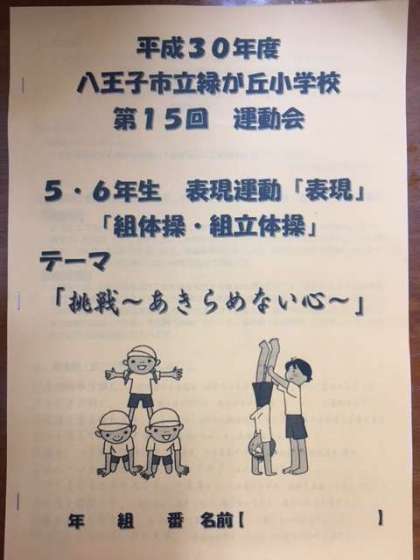 平成３０年度
八王子市立緑が丘小学校
第１５回　運動会
５・６年生　表現運動「表現」
「組体操・組立体操」
テーマ
「挑戦～あきらめない心～」
年　組　番　名前【　　　　　】